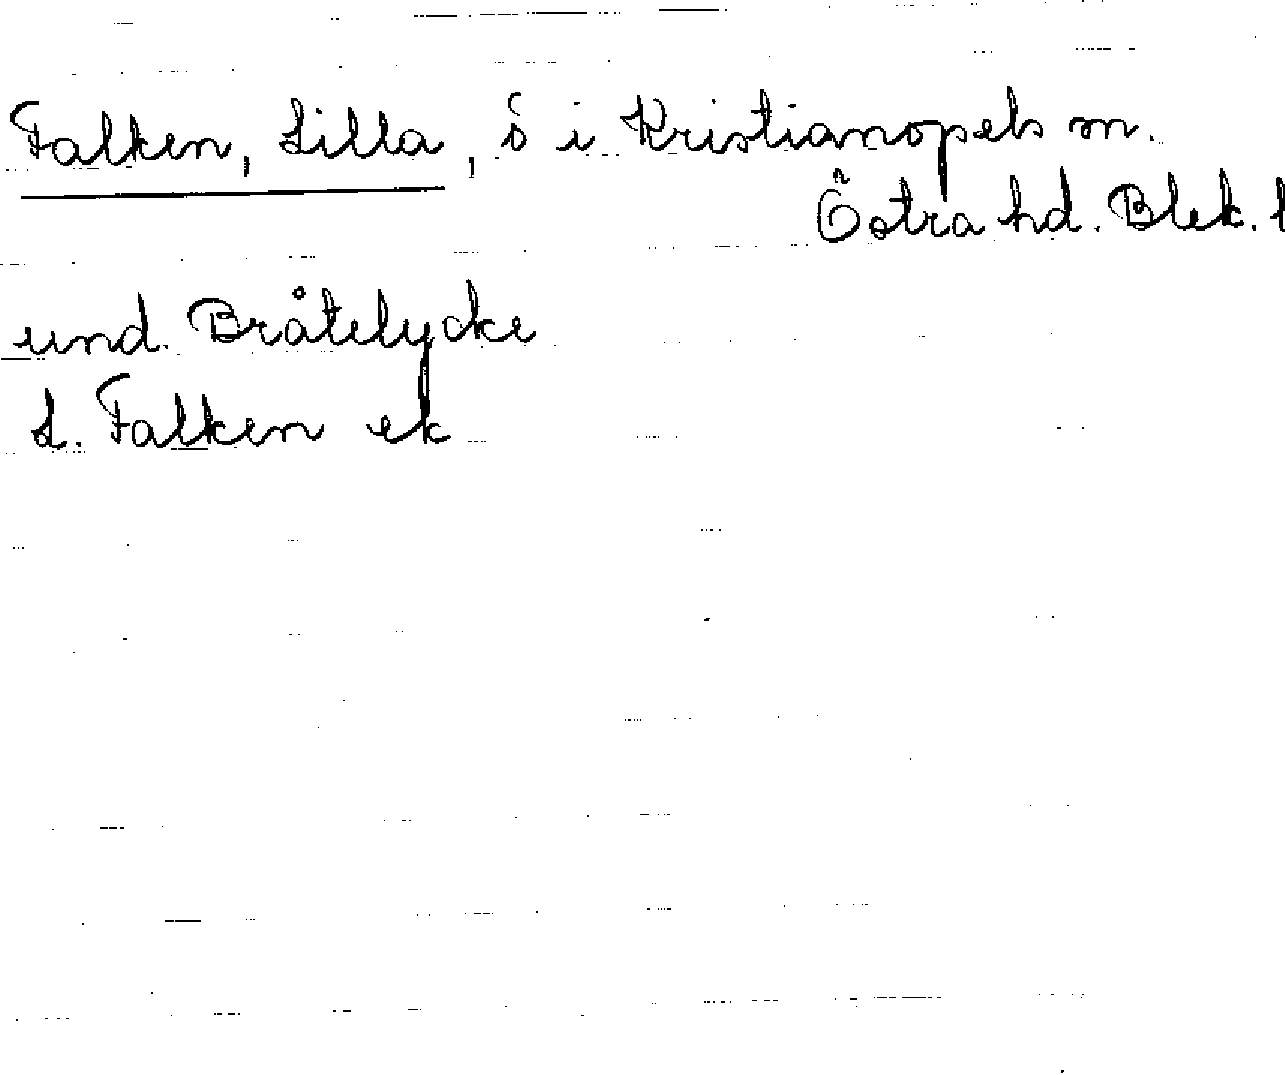 Falken, Lilla, ö i Kristianopels sn.
Östra hd. Blek. l
und. Bråtelycke
L. Falken ek